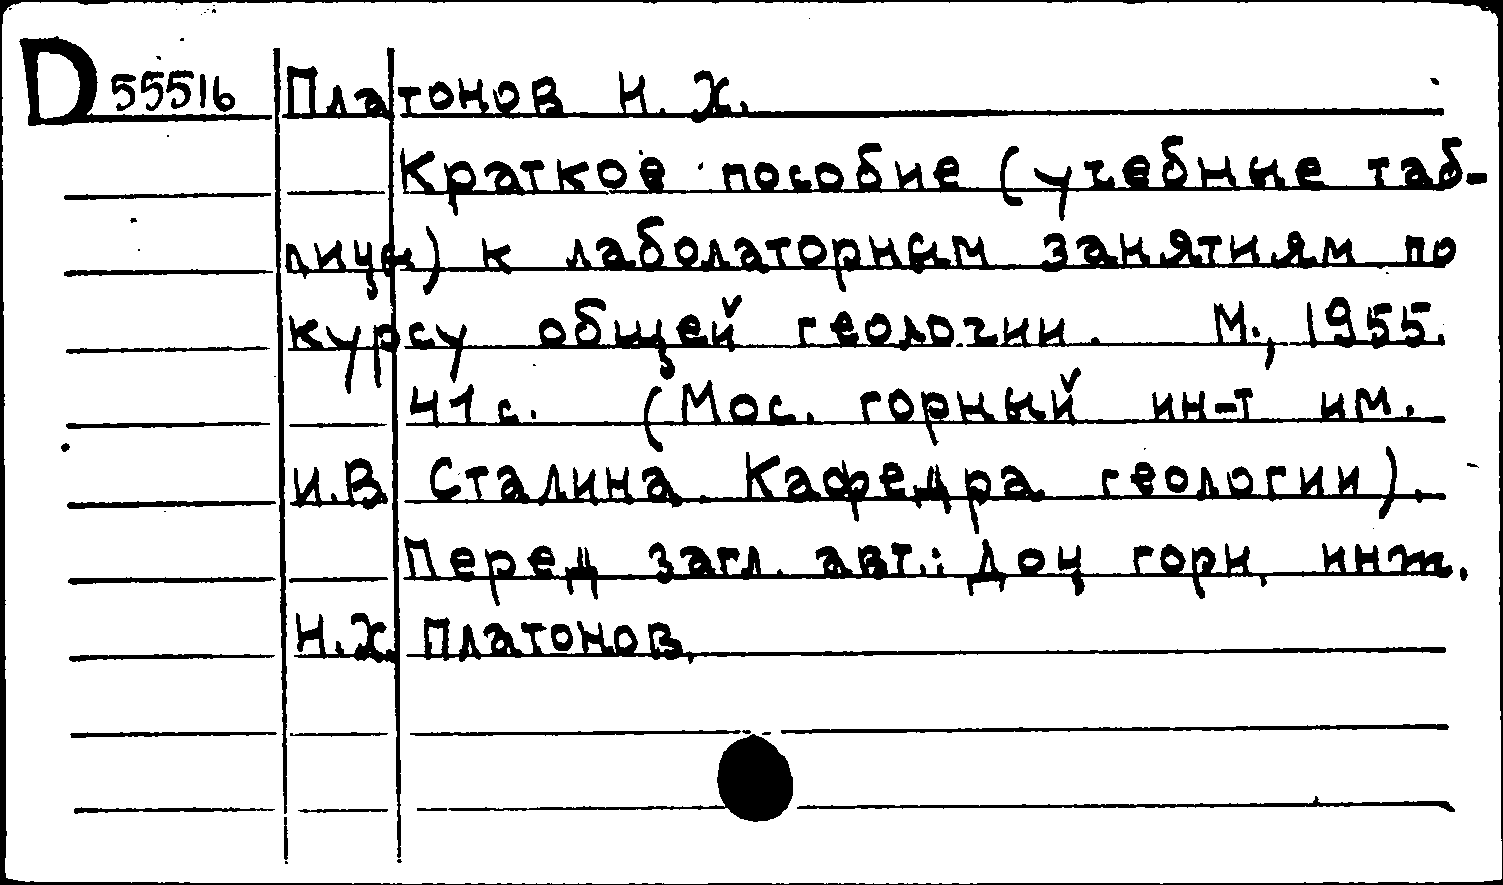 D 55516 Платонов Н. Х.
Краткое пособие (учебные таб-
лицы) к лаболаторным занятиям по
курсу общей геологии. М., 1955.
41 с. (Мос. горный ин-т им.
И.В. Сталина. Кафедра геологии).
Перед загл. авт.: Доц. горн. инж.
Н.Х. Платонов.